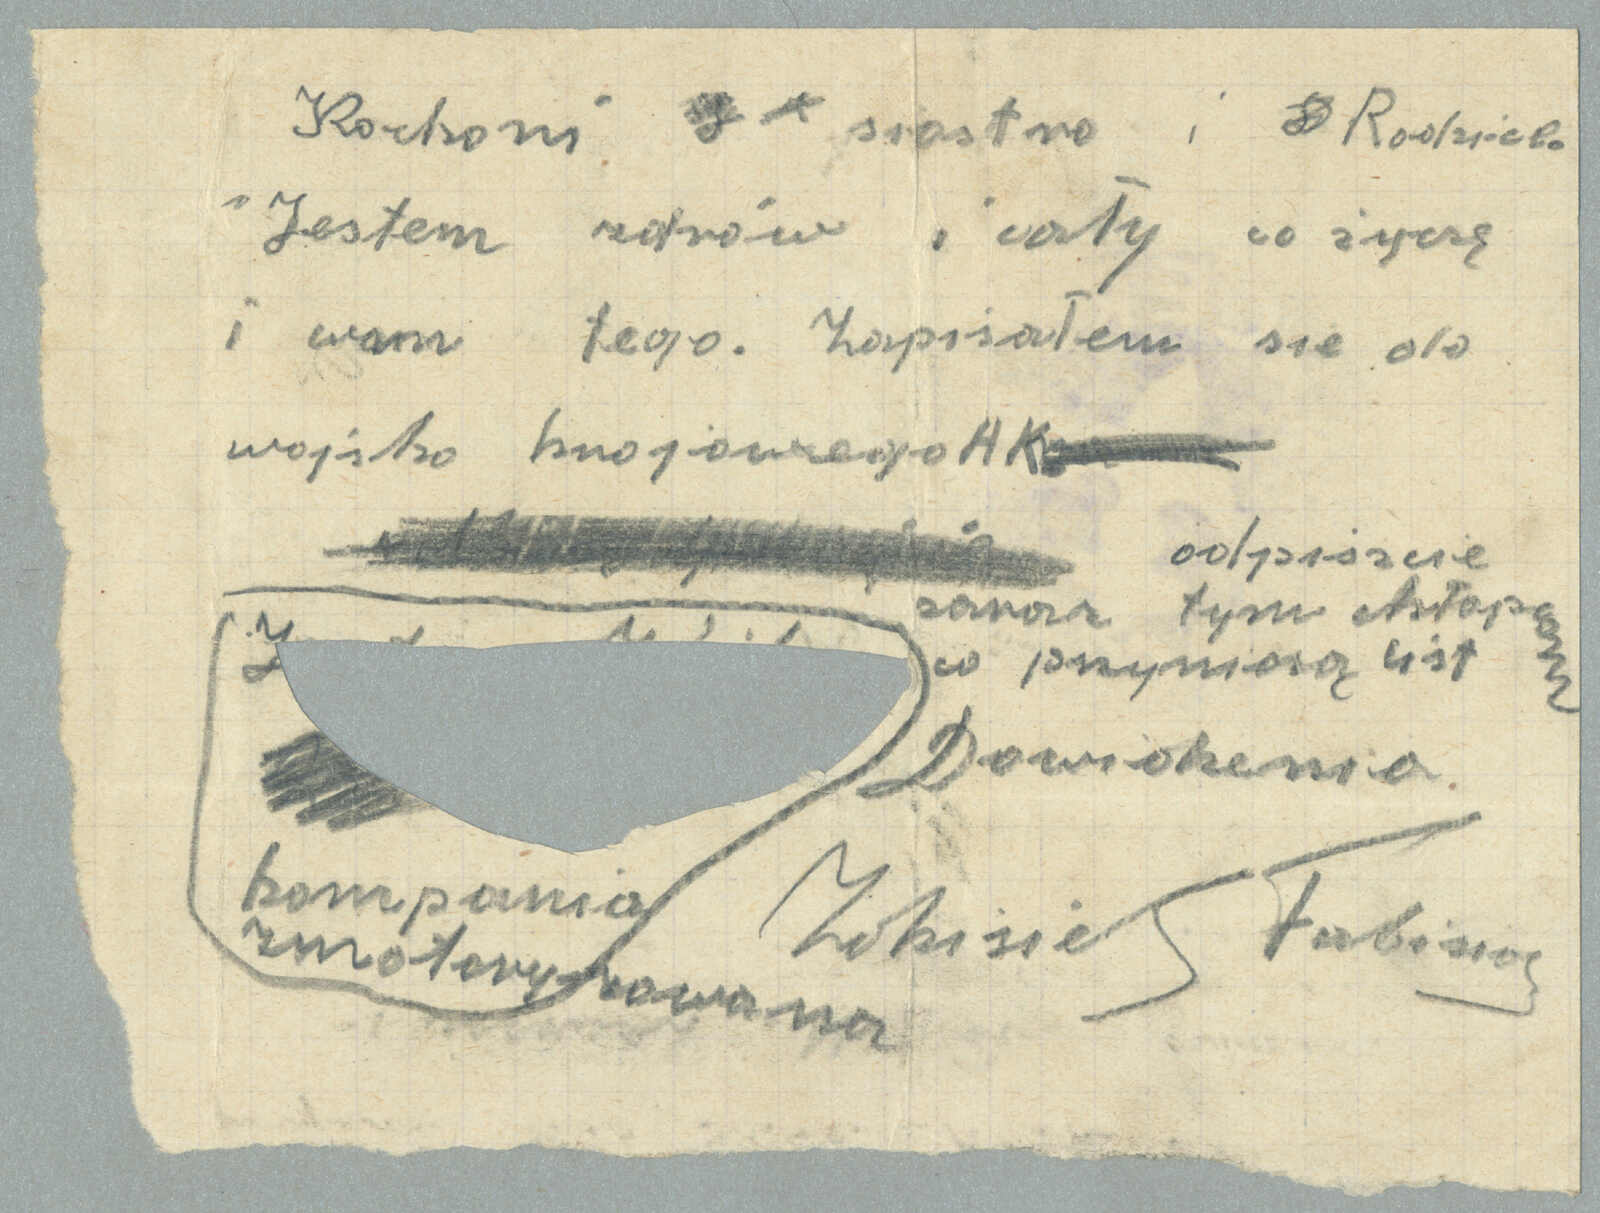 Kochani siostro i Rodzice
Jestem zdrów i cały co życzę
i wam tego. Zapisałem sie do
wojska krajowego AK
odpiszcie
zaraz tym chłopcą
co przyniosą list
Dowidzenia.
kompania
zmoteryzowana